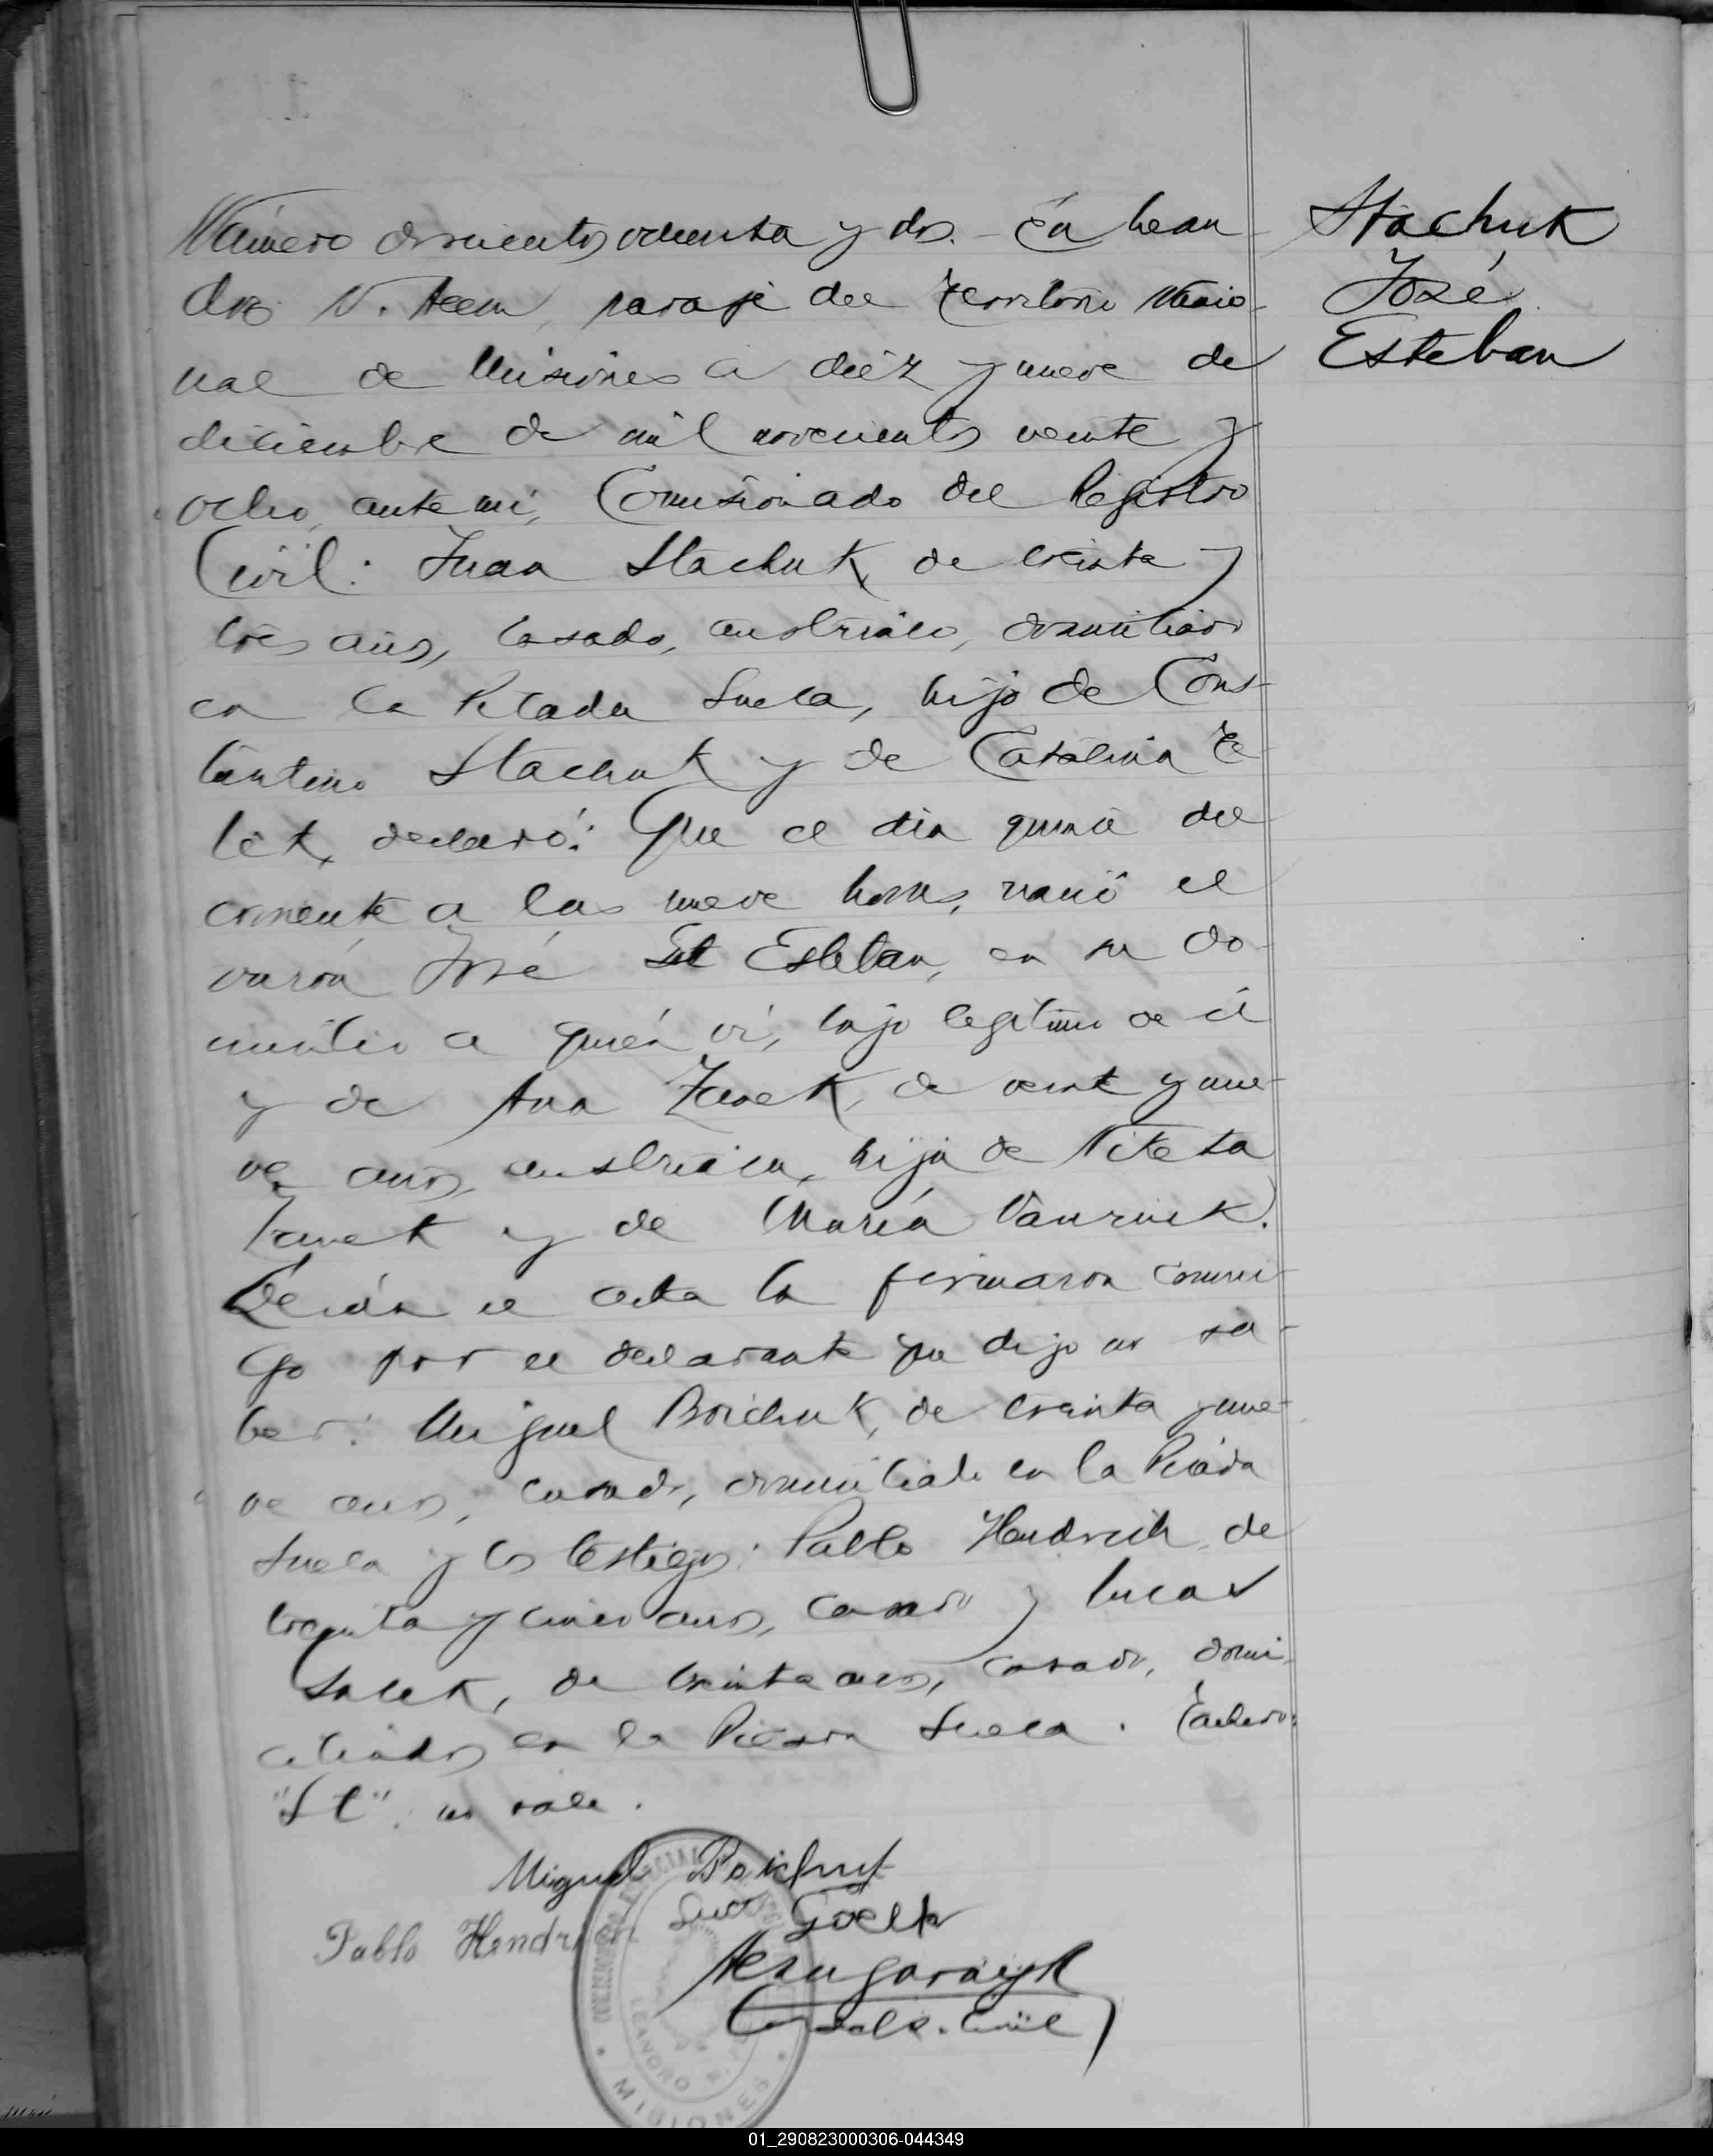 Stachuk
José
Esteban
Número doscientos ochenta y dos. - En Lean
dro N. Alem, paraje del Territorio Nacio-
nal de Misiones a diez y nueve de
diciembre de mil novecientos veinte y
ocho, ante mí, Comisionado del Registro
Civil: Juan Stachuk, de treinta y
tres años, casado, austriaco, domiciliado
en la Picada Sueca, hijo de Cons-
tantino Stachuk y de Catalina
declaró: Que el día quince del
corriente a las nueve horas, nació el
varón José St Esteban, en su do-
micilio a quién ví, hijo legítimo de él
y de Ana Zanek, de veinte y nue-
ve años, austriaca, hija de Nikita
Zanek y de María
Leída el acta la firmaron conmi-
go por el declarante que dijo no sa-
ber: Miguel Boichuk, de treinta y nue-
ve años, casado, domiciliado en la Picada
Sueca y los testigos: Pablo Hendrich, de
treinta y cinco años, casado y Lucas
de treinta años, casado, domi-
ciliados en la Picada Sueca.
"St": no vale.
Miguel
Pablo
LEANDRO N.
MISIONES
01_290823000306-044349